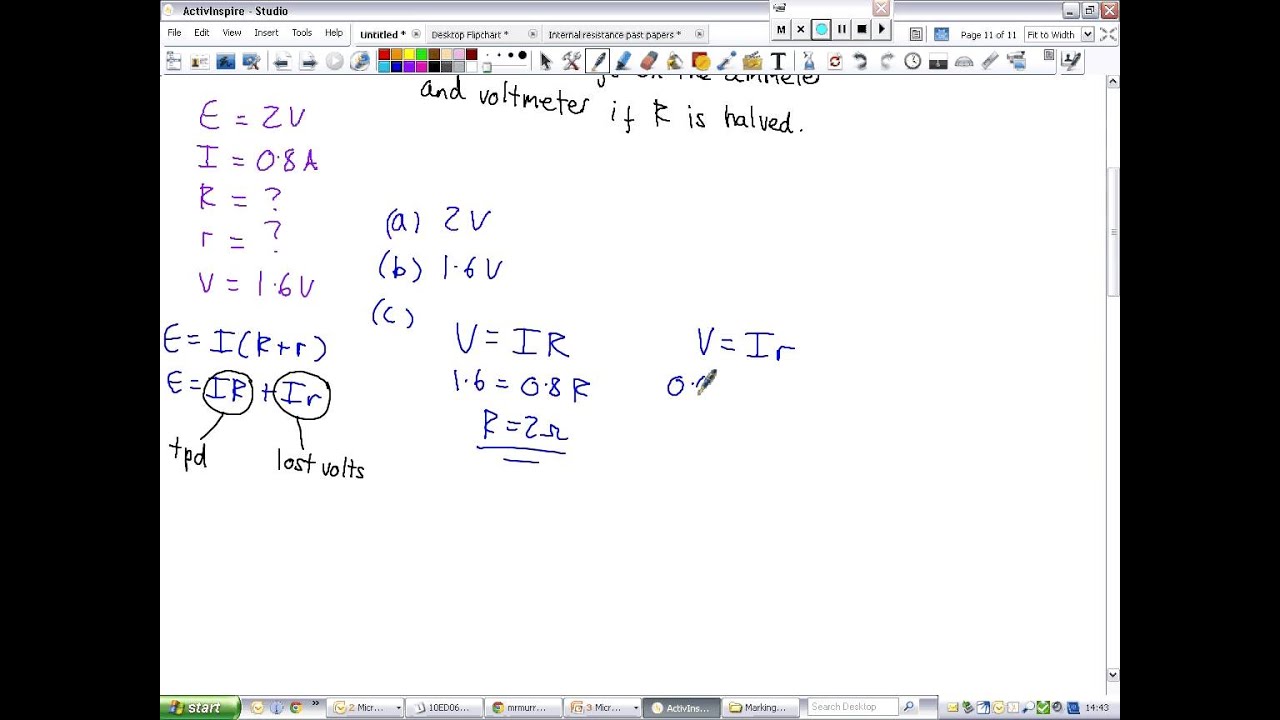 ActivInspire - Studio
File Edit View Insert Tools Help
Untitled * Desktop Flipchart * Internal resistance past papers *
M
Page 11 of 11 Fit to Width
on the ammeter
and voltmeter if R is halved.
E = 2V
I = 0.8A
R = ?
r = ?
V = 1.6V
(a) 2V
(b) 1.6V
(c)
E = I(R+r)
E = IR + Ir
tpd
lost volts
V = IR
1.6 = 0.8R
R = 2Ω
V = Ir
0.
start
2 Micr...
10ED06...
mrmurr...
3 Micro...
ActivIns...
Marking...
Search Desktop
14:43